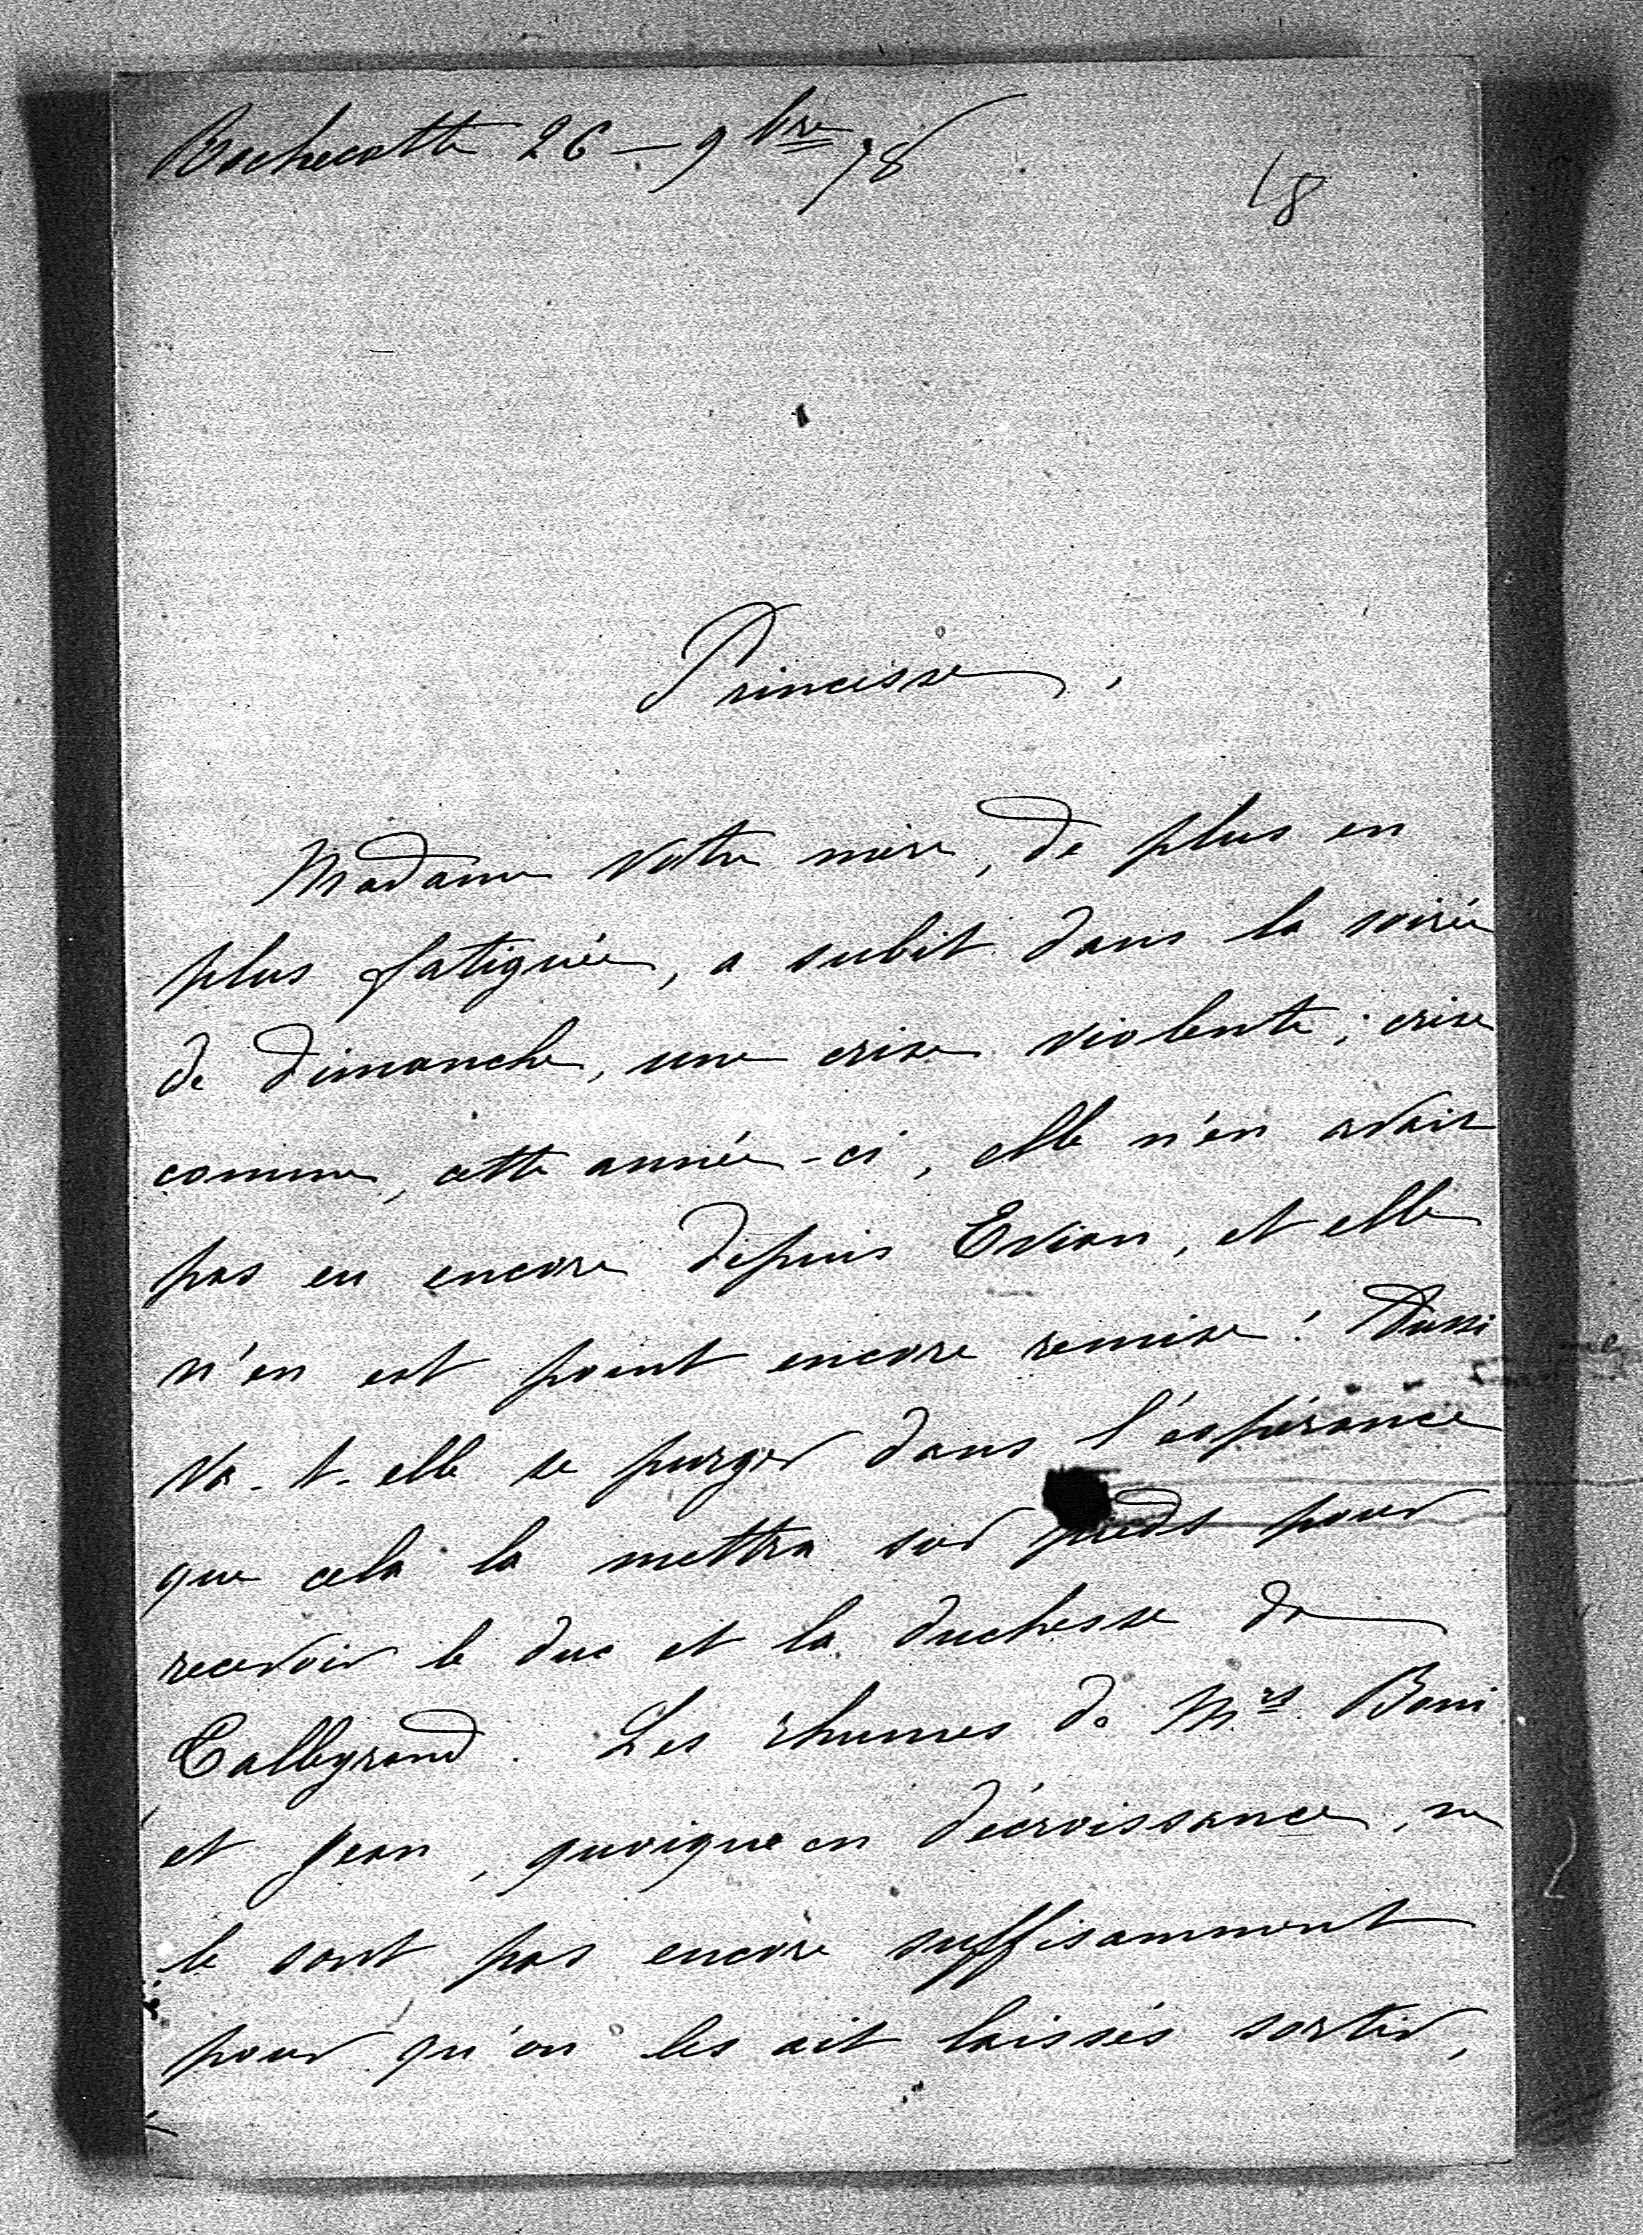 Rochecotte 26 - 9bre 78
18
Princesse,
Madame votre mère, de plus en
plus fatiguée, a subit dans la soirée
de dimanche, une crise violente; crise
comme, cette année-ci, elle n'en avait
pas eu encore depuis Evian, et elle
n'en est point encore remise! Aussi
va-t-elle se purger dans l'éspérance
que cela la mettra sur pieds pour
recevoir le duc et la duchesse de
Talleyrand. Les rhumes de Mrs Boni
et Jean, quoique en décroissance, ne
le sont pas encore suffisamment
pour qu'on les ait laissés sortir,